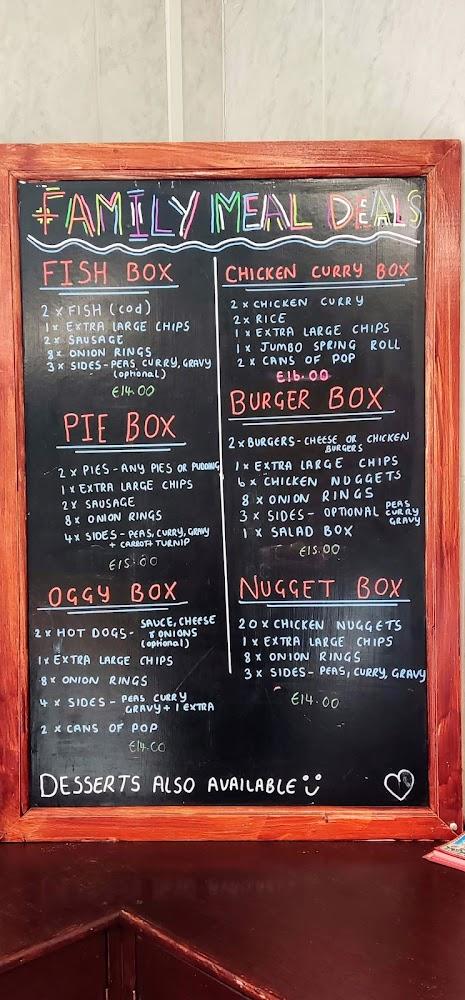 FAMILY MEAL DEALS
FISH BOX
2 x FISH (cod)
1 x EXTRA LARGE CHIPS
2 x SAUSAGE
8 x ONION RINGS
3 x SIDES - PEAS, CURRY, GRAVY
(optional)
£14.00
PIE BOX
2 x PIES - ANY PIES OR PUDDING
1 x EXTRA LARGE CHIPS
2 x SAUSAGE
8 x ONION RINGS
4 x SIDES - PEAS, CURRY, GRAVY
+ CARROT + TURNIP
£15.00
OGGY BOX
2 x HOT DOGS - SAUCE, CHEESE
& ONIONS
(optional)
1 x EXTRA LARGE CHIPS
8 x ONION RINGS
4 x SIDES - PEAS CURRY
GRAVY + 1 EXTRA
2 x CANS OF POP
£14.00
CHICKEN CURRY BOX
2 x CHICKEN CURRY
2 x RICE
1 x EXTRA LARGE CHIPS
1 x JUMBO SPRING ROLL
2 x CANS OF POP
£16.00
BURGER BOX
2 x BURGERS - CHEESE OR CHICKEN
BURGERS
1 x EXTRA LARGE CHIPS
6 x CHICKEN NUGGETS
8 x ONION RINGS
3 x SIDES - OPTIONAL PEAS
CURRY
GRAVY
1 x SALAD BOX
£15.00
NUGGET BOX
20 x CHICKEN NUGGETS
1 x EXTRA LARGE CHIPS
8 x ONION RINGS
3 x SIDES - PEAS, CURRY, GRAVY
£14.00
DESSERTS ALSO AVAILABLE